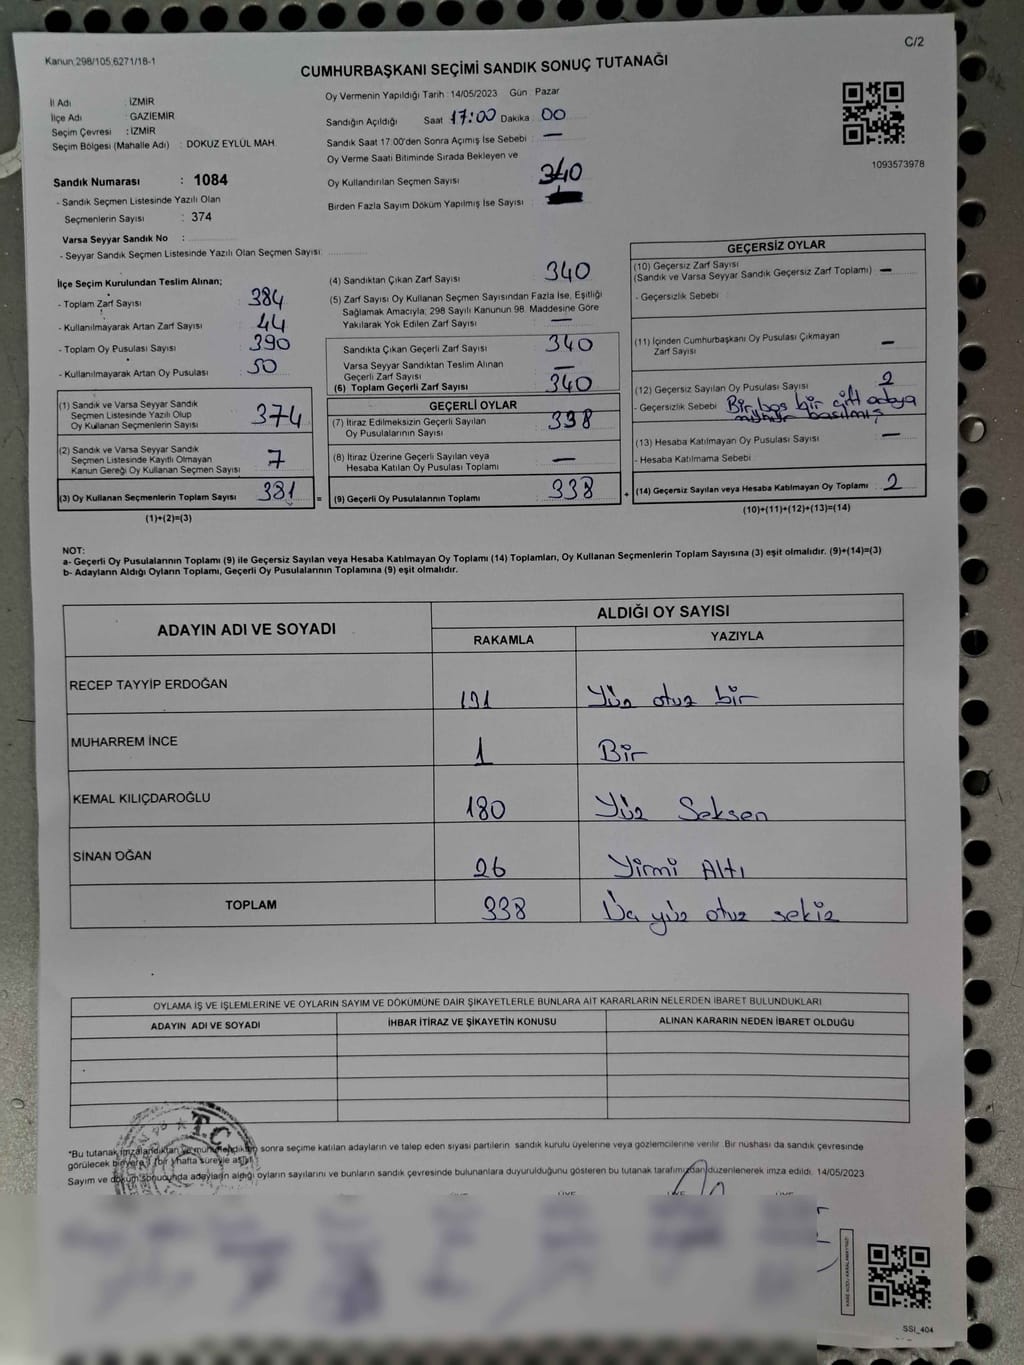 Kanun.298/105,6271/18-1
C/2
CUMHURBAŞKANI SEÇİMİ SANDIK SONUÇ TUTANAĞI
İl Adı : İZMİR
İlçe Adı : GAZİEMİR
Seçim Çevresi : İZMİR
Seçim Bölgesi (Mahalle Adı) : DOKUZ EYLÜL MAH.
Sandık Numarası : 1084
- Sandık Seçmen Listesinde Yazılı Olan
Seçmenlerin Sayısı : 374
Varsa Seyyar Sandık No :
- Seyyar Sandık Seçmen Listesinde Yazılı Olan Seçmen Sayısı:
Oy Vermenin Yapıldığı Tarih : 14/05/2023 Gün : Pazar
Sandığın Açıldığı Saat 17:00 Dakika 00
Sandık Saat 17:00'den Sonra Açımış İse Sebebi : —
Oy Verme Saati Bitiminde Sırada Bekleyen ve
Oy Kullandırılan Seçmen Sayısı 340
Birden Fazla Sayım Döküm Yapılmış İse Sayısı
1093573978
İlçe Seçim Kurulundan Teslim Alınan;
- Toplam Zarf Sayısı 384
- Kullanılmayarak Artan Zarf Sayısı 44
- Toplam Oy Pusulası Sayısı 390
- Kullanılmayarak Artan Oy Pusulası 50
(1) Sandık ve Varsa Seyyar Sandık
Seçmen Listesinde Yazılı Olup
Oy Kullanan Seçmenlerin Sayısı 374
(2) Sandık ve Varsa Seyyar Sandık
Seçmen Listesinde Kayıtlı Olmayan
Kanun Gereği Oy Kullanan Seçmen Sayısı 7
(3) Oy Kullanan Seçmenlerin Toplam Sayısı 381 =
(1)+(2)=(3)
(4) Sandıktan Çıkan Zarf Sayısı 340
(5) Zarf Sayısı Oy Kullanan Seçmen Sayısından Fazla İse, Eşitliği
Sağlamak Amacıyla; 298 Sayılı Kanunun 98. Maddesine Göre
Yakılarak Yok Edilen Zarf Sayısı —
Sandıkta Çıkan Geçerli Zarf Sayısı 340
Varsa Seyyar Sandıktan Teslim Alınan
Geçerli Zarf Sayısı —
(6) Toplam Geçerli Zarf Sayısı 340
GEÇERLİ OYLAR
(7) İtiraz Edilmeksizin Geçerli Sayılan
Oy Pusulalarının Sayısı 338
(8) İtiraz Üzerine Geçerli Sayılan veya
Hesaba Katılan Oy Pusulası Toplamı —
(9) Geçerli Oy Pusulalarının Toplamı 338 +
GEÇERSİZ OYLAR
(10) Geçersiz Zarf Sayısı
(Sandık ve Varsa Seyyar Sandık Geçersiz Zarf Toplamı) —
- Geçersizlik Sebebi :
(11) İçinden Cumhurbaşkanı Oy Pusulası Çıkmayan
Zarf Sayısı —
(12) Geçersiz Sayılan Oy Pusulası Sayısı 2
- Geçersizlik Sebebi : Bir boş bir çift adaya
mühür basılmış
(13) Hesaba Katılmayan Oy Pusulası Sayısı —
- Hesaba Katılmama Sebebi :
(14) Geçersiz Sayılan veya Hesaba Katılmayan Oy Toplamı 2
(10)+(11)+(12)+(13)=(14)
NOT:
a- Geçerli Oy Pusulalarının Toplamı (9) ile Geçersiz Sayılan veya Hesaba Katılmayan Oy Toplamı (14) Toplamları, Oy Kullanan Seçmenlerin Toplam Sayısına (3) eşit olmalıdır. (9)+(14)=(3)
b- Adayların Aldığı Oyların Toplamı, Geçerli Oy Pusulalarının Toplamına (9) eşit olmalıdır.
ADAYIN ADI VE SOYADI ALDIĞI OY SAYISI
RAKAMLA YAZIYLA
RECEP TAYYİP ERDOĞAN 131 Yüz otuz bir
MUHARREM İNCE 1 Bir
KEMAL KILIÇDAROĞLU 180 Yüz Seksen
SİNAN OĞAN 26 Yirmi Altı
TOPLAM 338 Üç yüz otuz sekiz
OYLAMA İŞ VE İŞLEMLERİNE VE OYLARIN SAYIM VE DÖKÜMÜNE DAİR ŞİKAYETLERLE BUNLARA AİT KARARLARIN NELERDEN İBARET BULUNDUKLARI
ADAYIN ADI VE SOYADI İHBAR İTİRAZ VE ŞİKAYETİN KONUSU ALINAN KARARIN NEDEN İBARET OLDUĞU
T.C.
*Bu tutanak imzalandıktan ve mühürlendikten sonra seçime katılan adayların ve talep eden siyasi partilerin sandık kurulu üyelerine veya gözlemcilerine verilir. Bir nüshası da sandık çevresinde
görülecek bir yere bir hafta süreyle asılır.
Sayım ve döküm sonucunda adayların aldığı oyların sayılarını ve bunların sandık çevresinde bulunanlara duyurulduğunu gösteren bu tutanak tarafımızdan düzenlenerek imza edildi. 14/05/2023
SSI_404